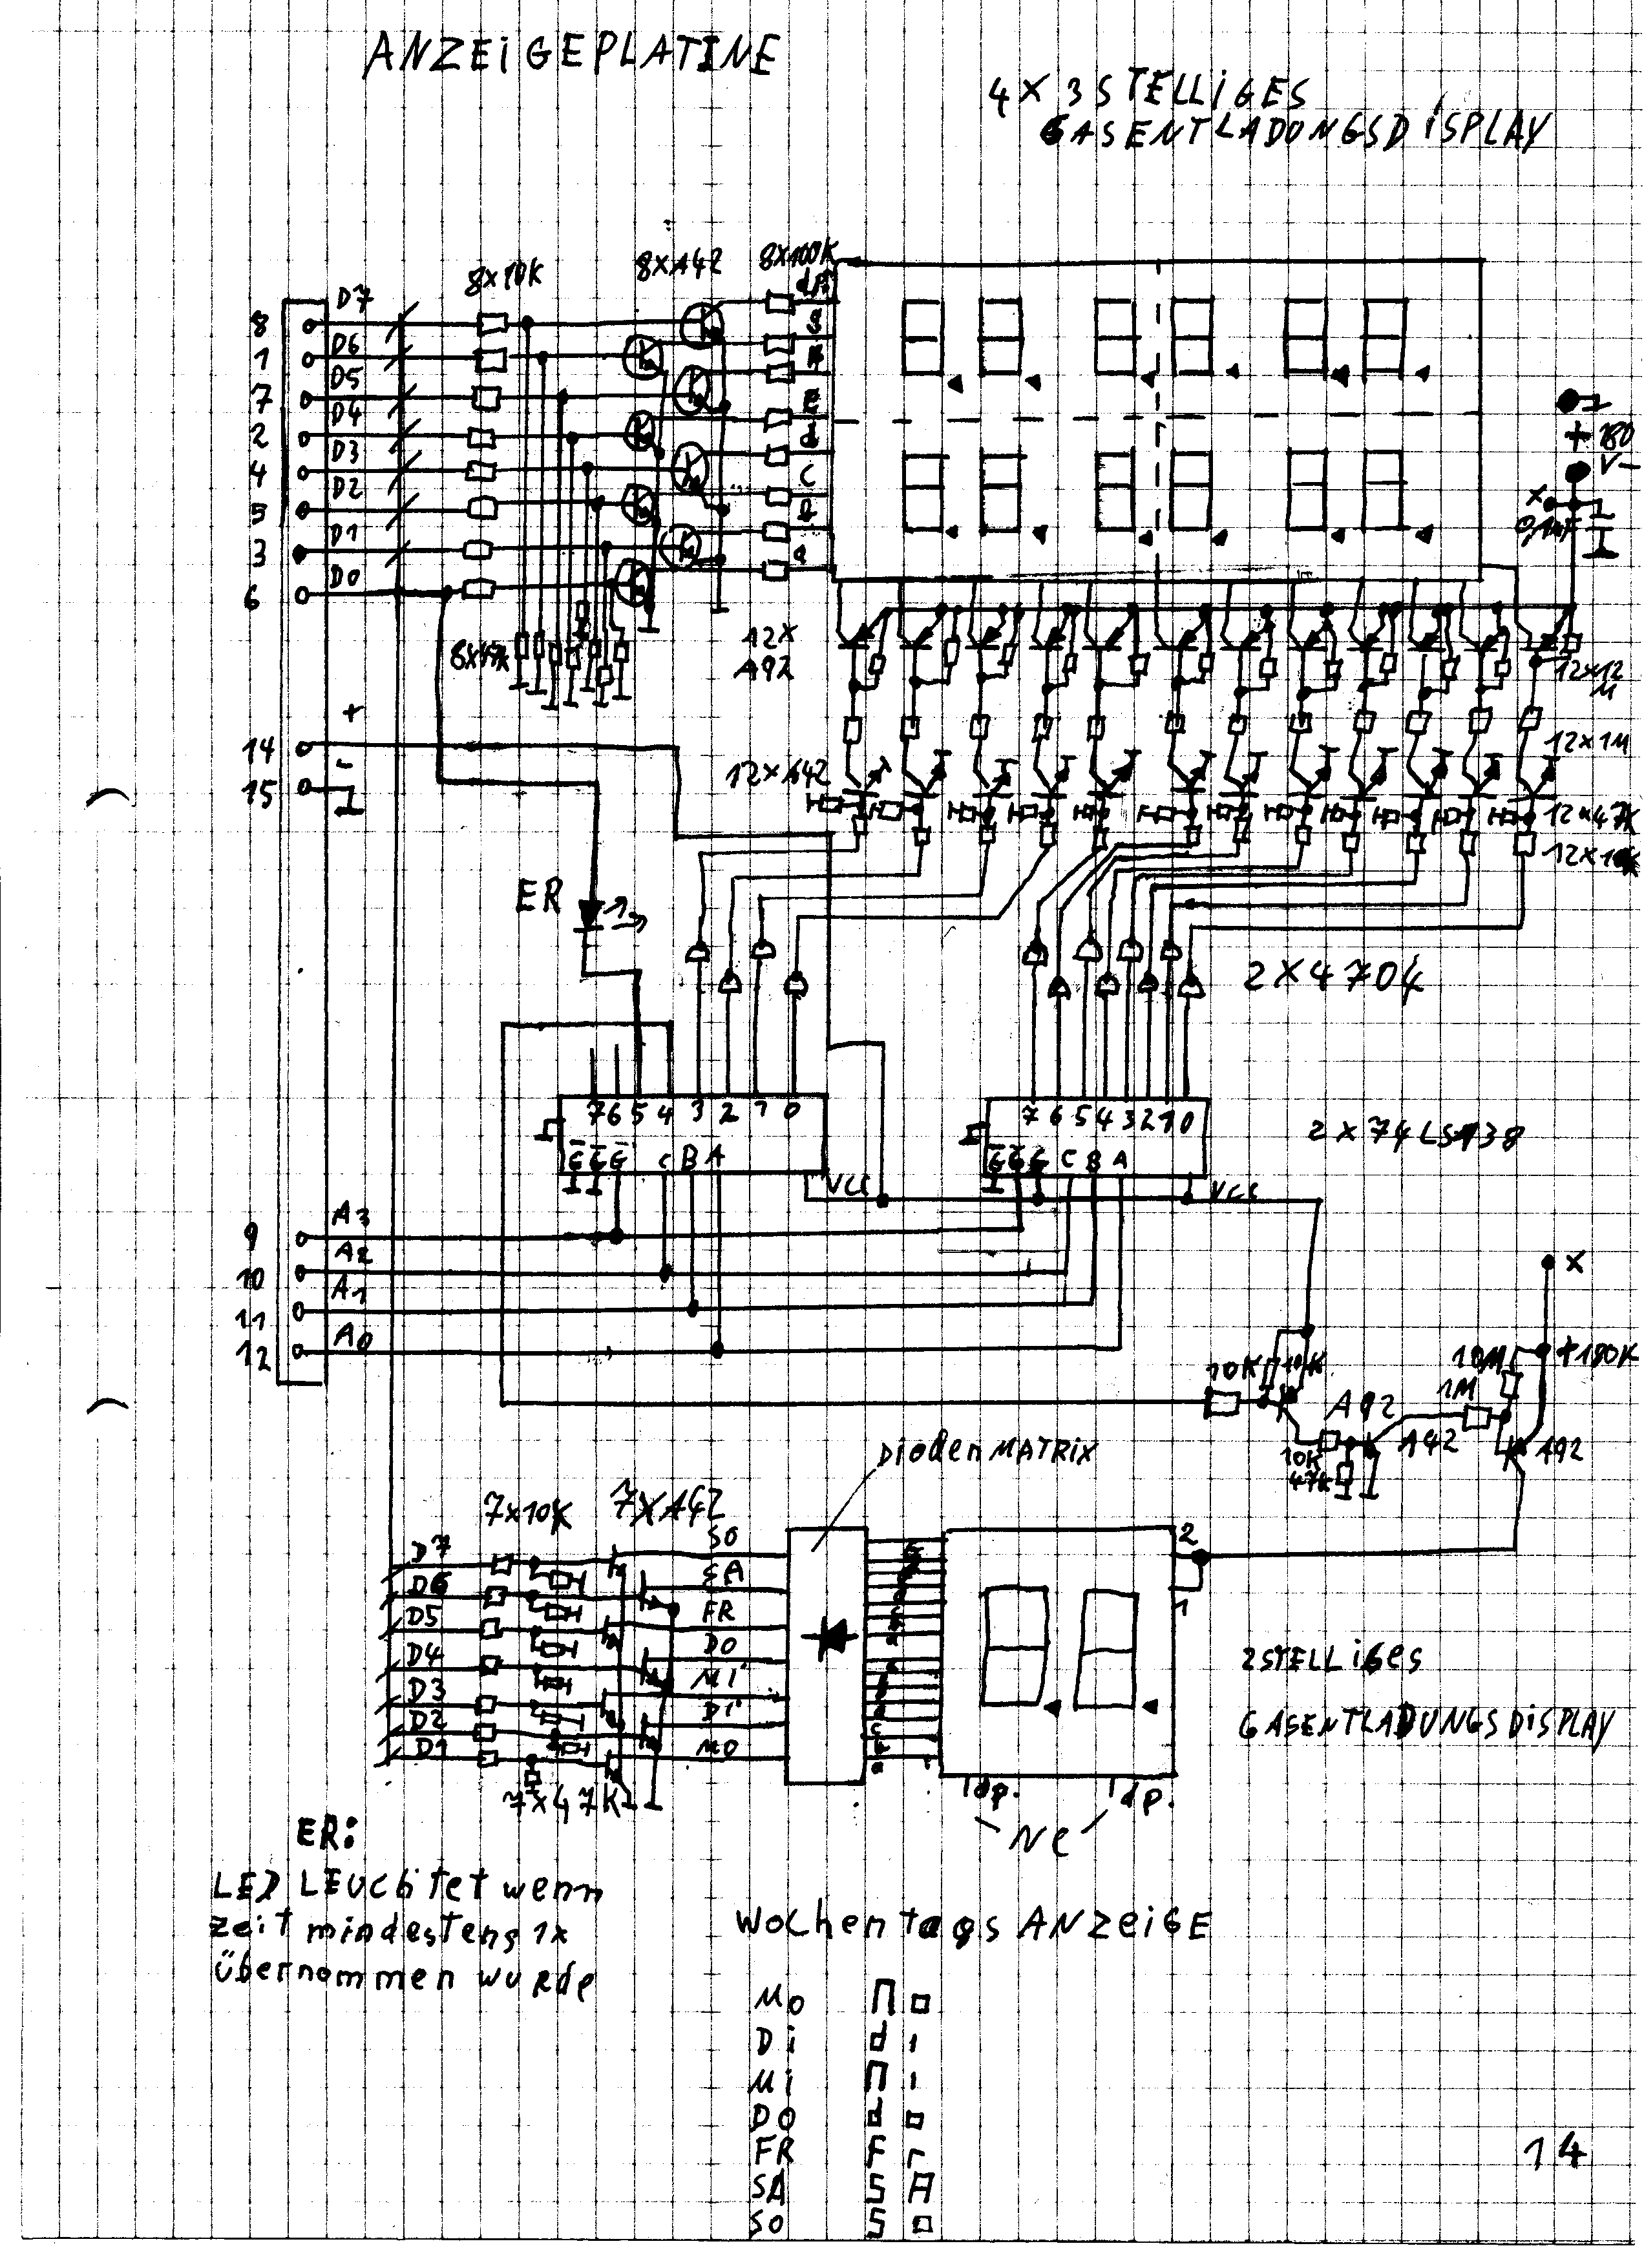 ANZEIGEPLATINE
4 X 3 STELLIGES
GASENTLADUNGSDISPLAY
8x10K
8XA42
8X100K
8 D7
1 D6
7 D5
2 D4
4 D3
5 D2
3 D1
6 D0
dP
g
E
d
C
a
+ 180
V-
X
0,1mF
8x47K
12X
A92
12x12
M
12x1M
12xA42
12x47K
12x10K
14 +
15 -
ER
2X4704
7 6 5 4 3 2 1 0
7 6 5 4 3 2 1 0
2 X 74LS138
G G G C B A
G G G C B A
VCC
VCC
9 A3
10 A2
11 A1
12 A0
X
+180K
10K
10K
10M
1M
A92
A42
A92
10K
47K
DiodenMATRIX
7x10K
7XA42
D7
D6
D5
D4
D3
D2
D1
SO
SA
FR
DO
Mi
Di
MO
2
1
7x47K
dp.
dp.
NC
2STELLIGES
GASENTLADUNGSDISPLAY
ER:
LED LEUChTet wenn
zeit mindestens 1x
übernommen wurde
Wochentags ANZeiGE
Mo
Di
Mi
DO
FR
SA
SO
14